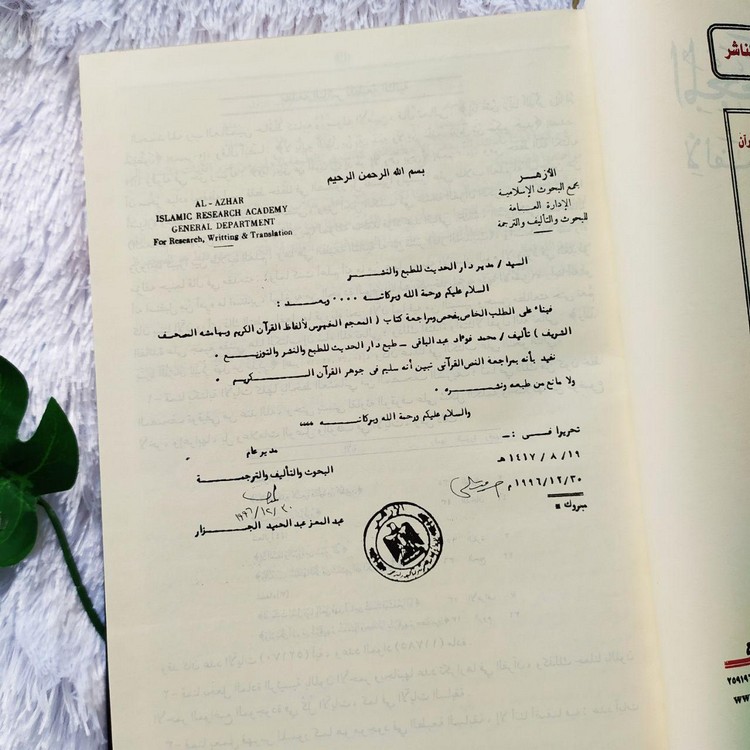 بسم الله الرحمن الرحيم
الأزهر
مجمع البحوث الإسلامية
الإدارة العامة
للبحوث والتأليف والترجمة
AL - AZHAR
ISLAMIC RESEARCH ACADEMY
GENERAL DEPARTMENT
For Research, Writting & Translation
السيد / مدير دار الحديث للطبع والنشر
السلام عليكم ورحمة الله وبركاته .... وبعد :
فبناء على الطلب الخاص بفحص ومراجعة كتاب ( المعجم المفهرس لألفاظ القرآن الكريم وبهامشه المصحف
الشريف ) تأليف / محمد فؤاد عبد الباقى - طبع دار الحديث للطبع والنشر والتوزيع .
نفيد بأنه بمراجعة النص القرآنى تبين أنه سليم فى جوهر القرآن الكريم .
ولا مانع من طبعه ونشره .
والسلام عليكم ورحمة الله وبركاته ....
تحريرا فى : -
١٩ / ٨ / ١٤١٧ هـ
٣٠ / ١٢ / ١٩٩٦ م
مبروك
مدير عام
البحوث والتأليف والترجمة
١٩٩٦/١٢/٣٠
عبد المعز عبد الحميد الجزار
الأزهر
الناشر